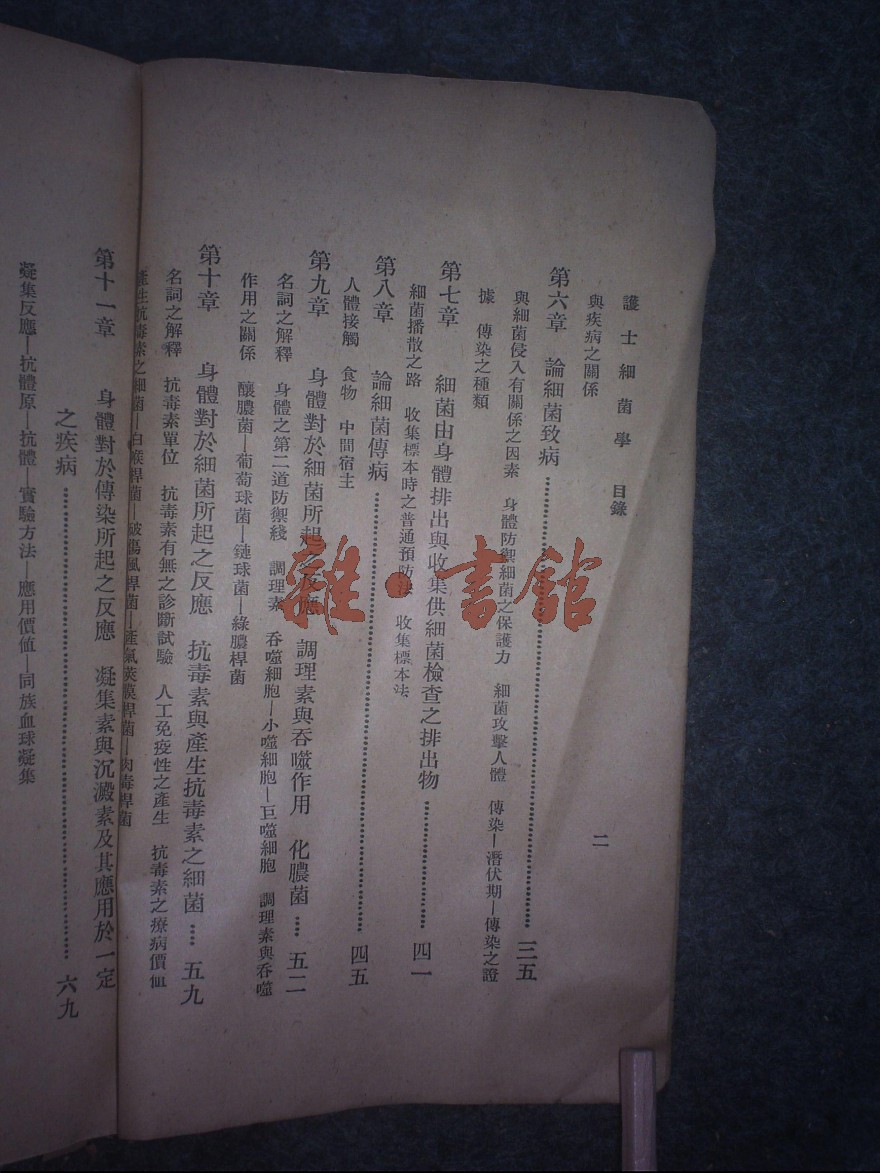 護士細菌學　目錄
二
與疾病之關係
第六章　論細菌致病……三五
與細菌侵入有關係之因素　身體防禦細菌之保護力　細菌攻擊人體　傳染—潛伏期—傳染之證
據　傳染之種類
第七章　細菌由身體排出與收集供細菌檢查之排出物……四一
細菌播散之路　收集標本時之普通預防法　收集標本法
第八章　論細菌傳病……四五
人體接觸　食物　中間宿主
第九章　身體對於細菌所起之反應　調理素與吞噬作用　化膿菌……五二
名詞之解釋　身體之第二道防禦綫　調理素　吞噬細胞—小噬細胞—巨噬細胞　調理素與吞噬
作用之關係　釀膿菌—葡萄球菌—鏈球菌—綠膿桿菌
第十章　身體對於細菌所起之反應　抗毒素與產生抗毒素之細菌……五九
名詞之解釋　抗毒素單位　抗毒素有無之診斷試驗　人工免疫性之產生　抗毒素之療病價值
產生抗毒素之細菌—白喉桿菌—破傷風桿菌—產氣莢膜桿菌—肉毒桿菌
第十一章　身體對於傳染所起之反應　凝集素與沉澱素及其應用於一定
之疾病……六九
凝集反應—抗體原—抗體—實驗方法—應用價值—同族血球凝集
雜·書館